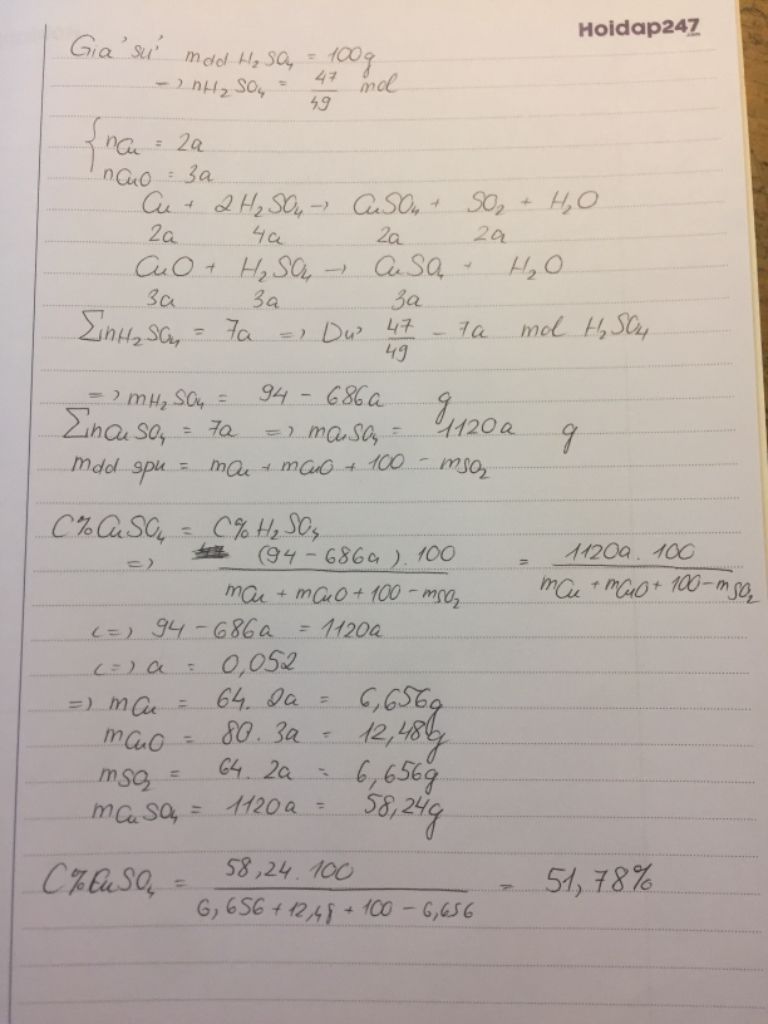 Hoidap247
.com
Giả sử mdd H₂SO₄ = 100g
=> nH₂SO₄ = 47/49 mol
{ nCu = 2a
nCuO = 3a
Cu + 2H₂SO₄ → CuSO₄ + SO₂ + H₂O
2a 4a 2a 2a
CuO + H₂SO₄ → CuSO₄ + H₂O
3a 3a 3a
ΣnH₂SO₄ = 7a => Dư 47/49 - 7a mol H₂SO₄
=> mH₂SO₄ = 94 - 686a g
ΣnCuSO₄ = 7a => mCuSO₄ = 1120a g
mdd spu = mCu + mCuO + 100 - mSO₂
C%CuSO₄ = C%H₂SO₄
=> (94 - 686a).100 / mCu + mCuO + 100 - mSO₂ = 1120a.100 / mCu + mCuO + 100 - mSO₂
<=> 94 - 686a = 1120a
<=> a = 0,052
=> mCu = 64. 2a = 6,656g
mCuO = 80. 3a = 12,48g
mSO₂ = 64. 2a = 6,656g
mCuSO₄ = 1120a = 58,24g
C%CuSO₄ = 58,24.100 / 6,656 + 12,48 + 100 - 6,656 = 51,78%